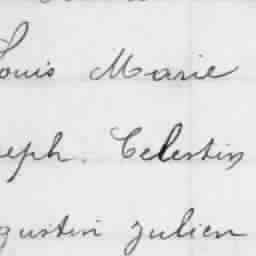 Louis Marie
eph. Celestin
gustin Julien